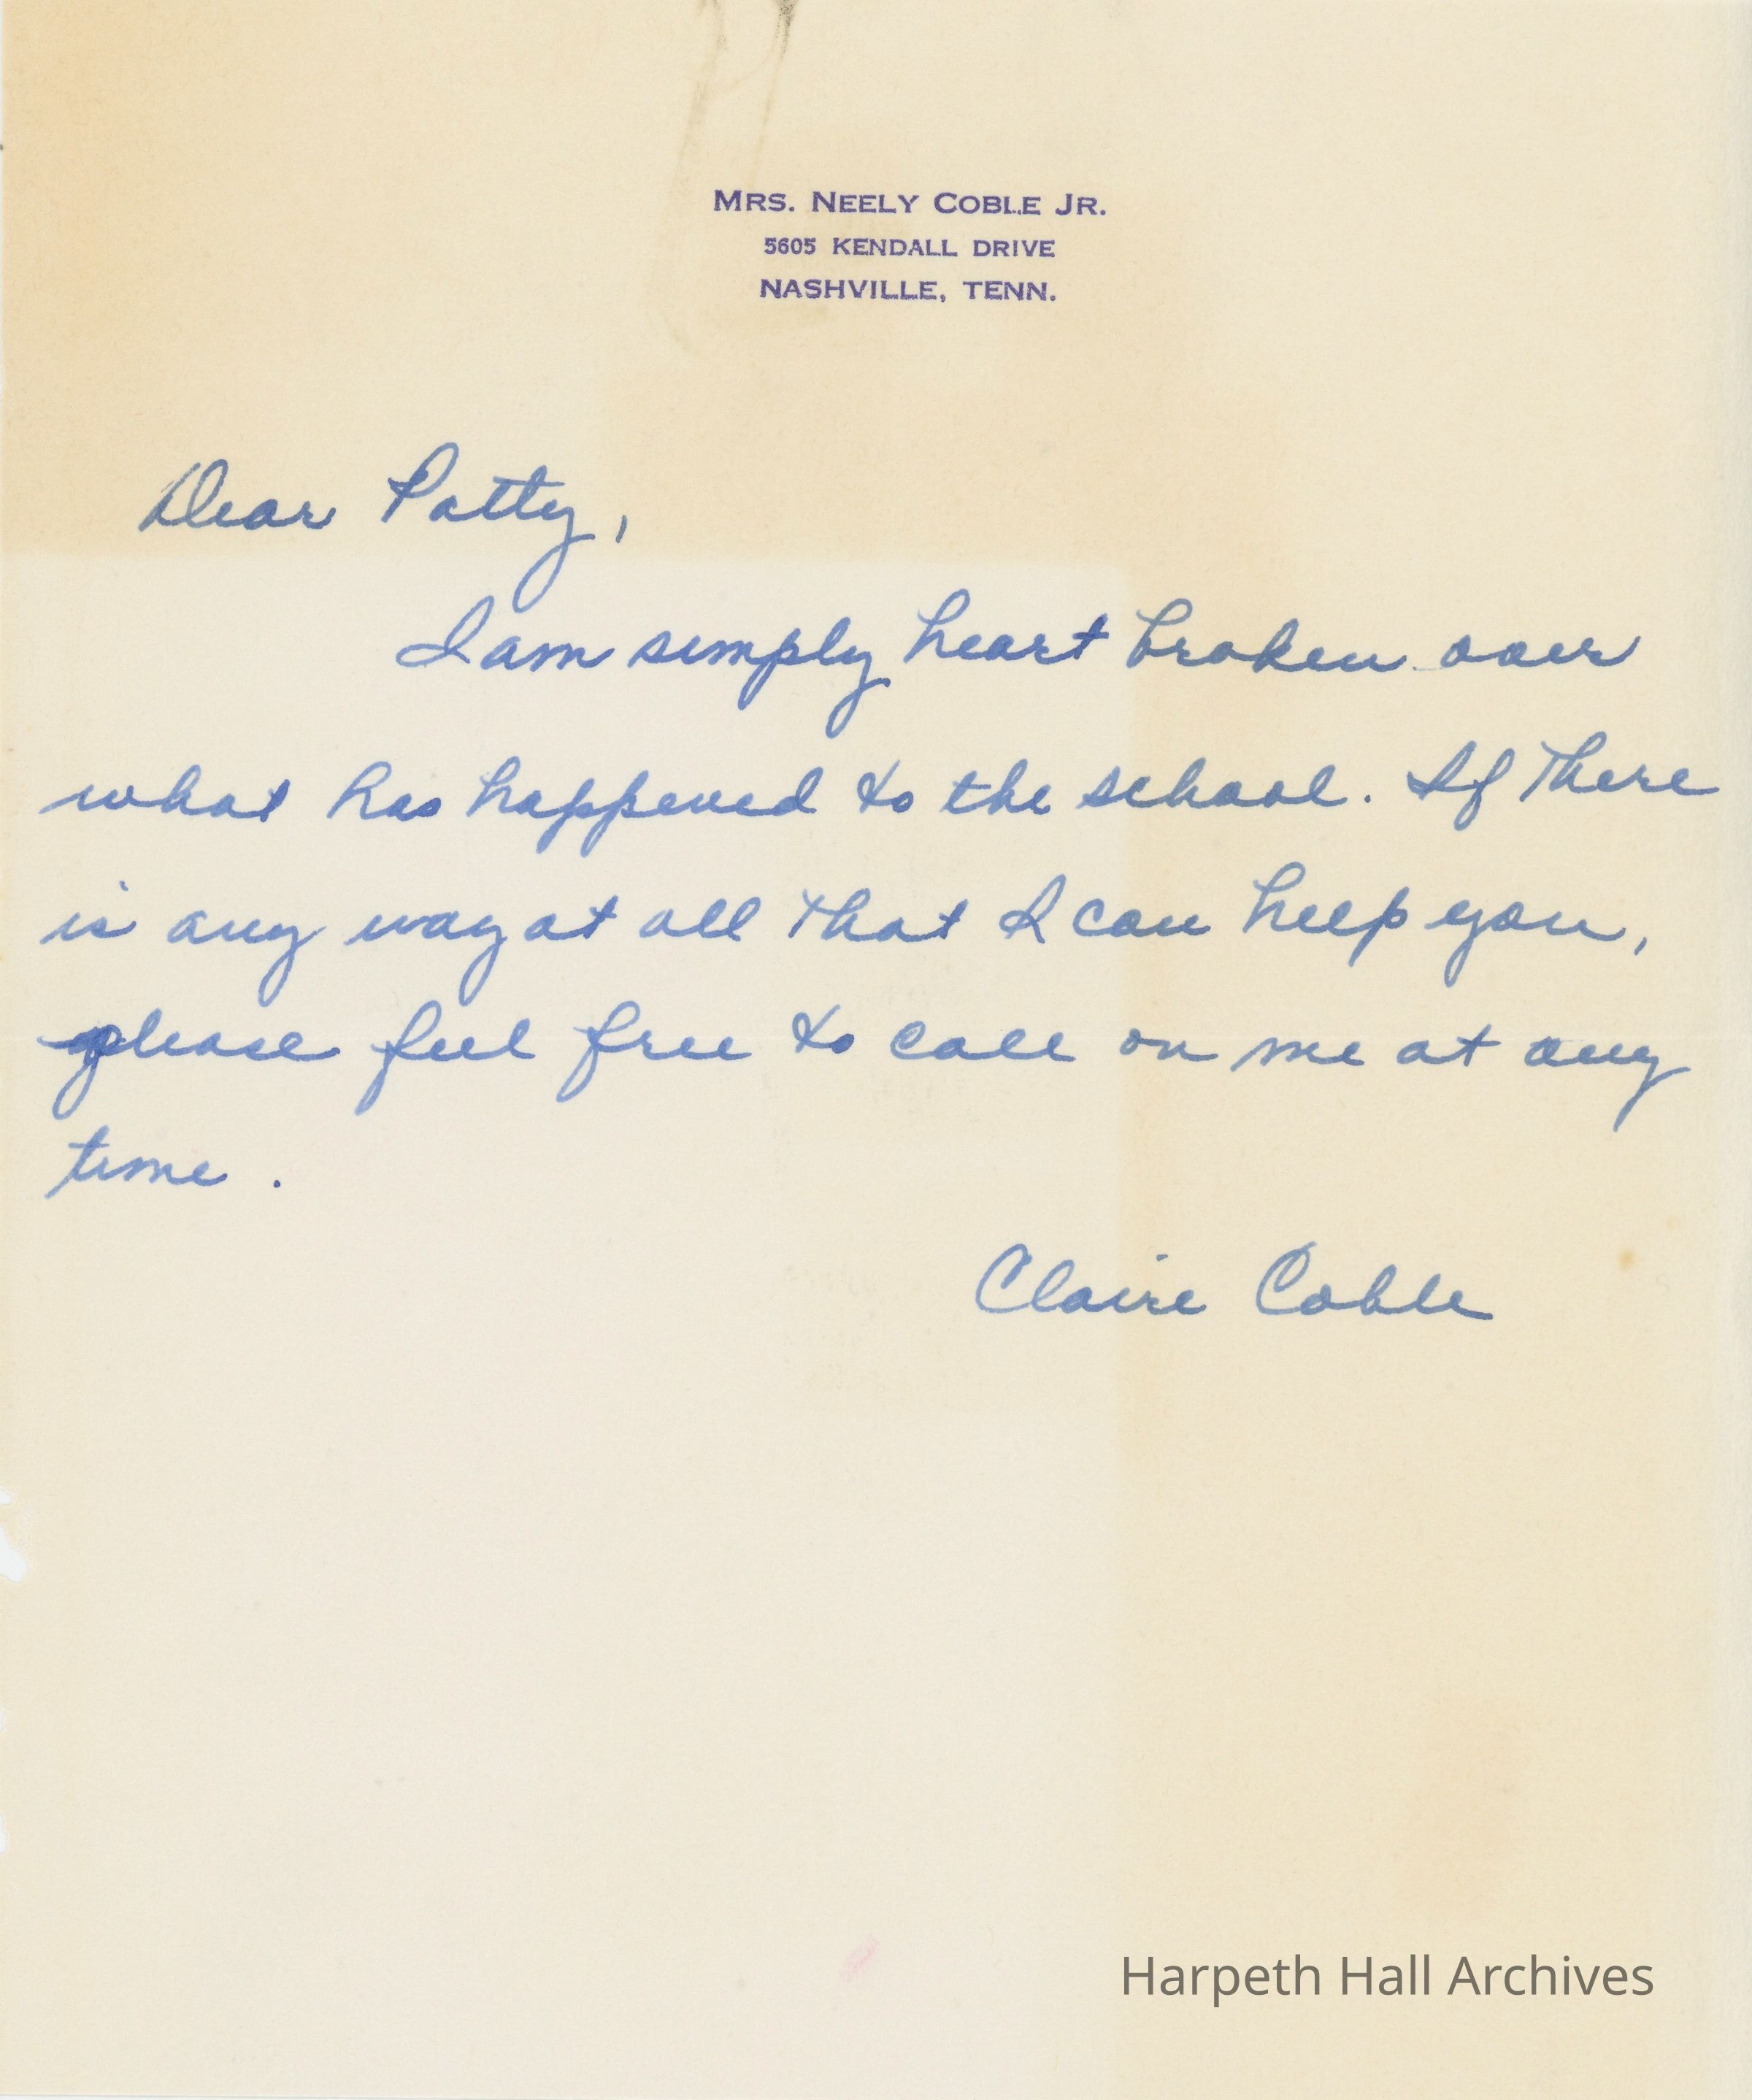 MRS. NEELY COBLE JR.
5605 KENDALL DRIVE
NASHVILLE, TENN.
Dear Patty,
I am simply heart broken over
what has happened to the school. If there
is any way at all that I can help you,
please feel free to call on me at any
time.
Claire Coble
Harpeth Hall Archives